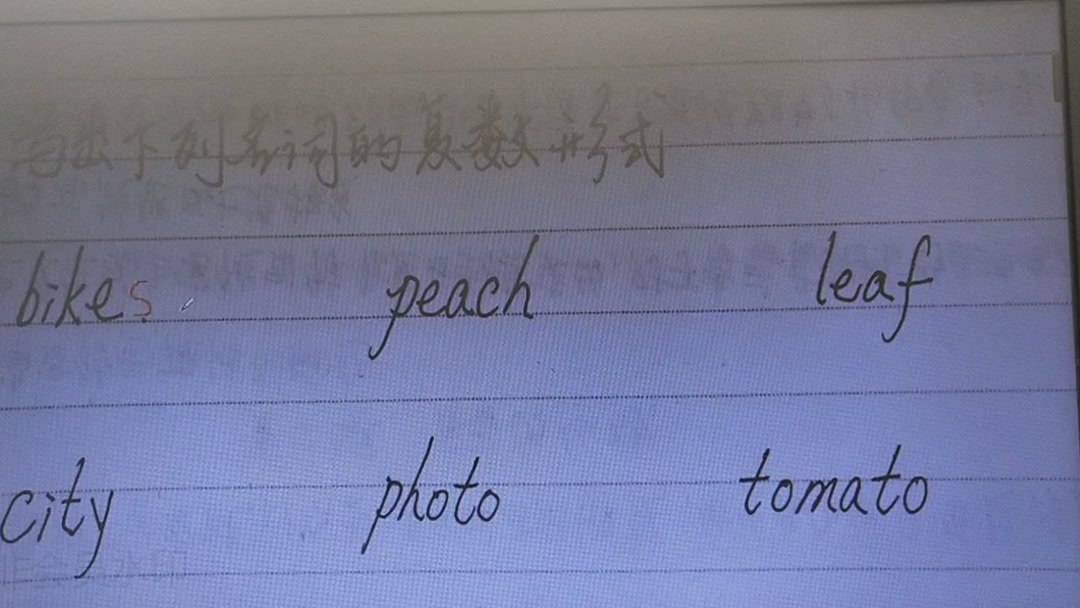 写出下列名词的复数形式
bikes peach leaf
city photo tomato